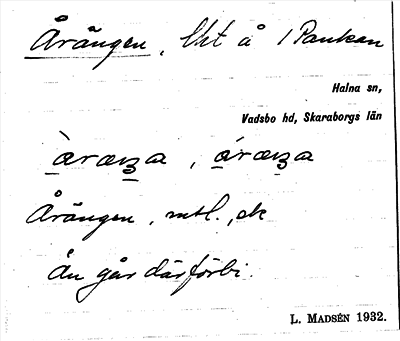 Årängen, lht å /Paukan
Halna sn,
Vadsbo hd, Skaraborgs län
Årängen, mtl., sk
Ån går därförbi.
L. MADSÉN 1932.